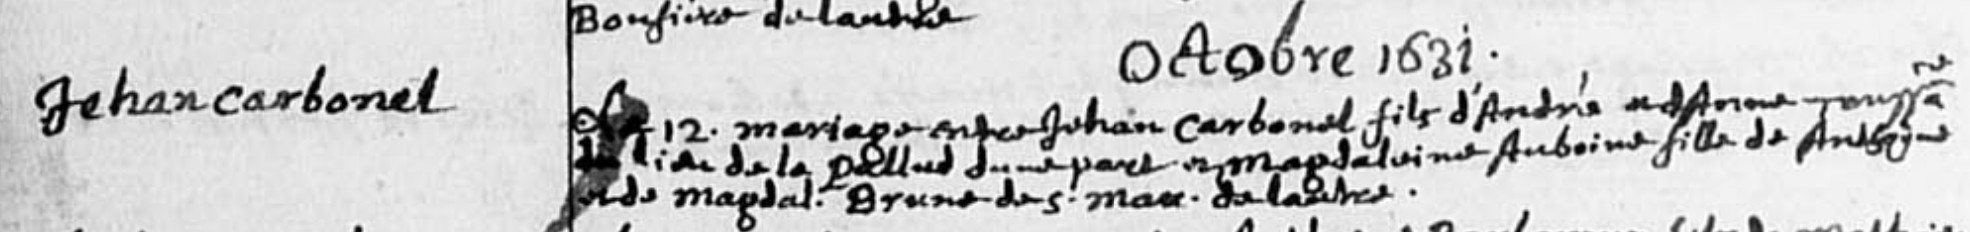 Bonsire de lautre
Octobre 1631.
Jehan Carbonel
Le 12. mariage entre Jehan Carbonel fils d'André et d'Anne
du lieu de la pallud dune part et Magdaleine Auboine fille de Anthoine
et de Magdal. Brune de s. max. de lautre.